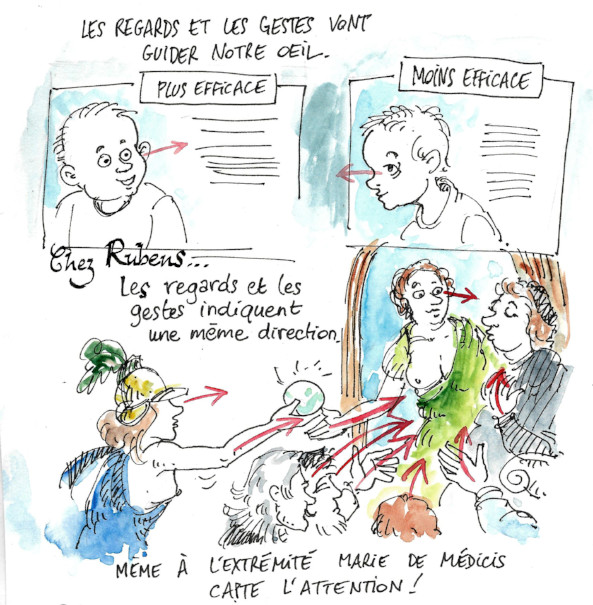 LES REGARDS ET LES GESTES VONT
GUIDER NOTRE OEIL.
PLUS EFFICACE
MOINS EFFICACE
Chez Rubens...
Les regards et les
gestes indiquent
une même direction.
MÊME À L'EXTRÉMITÉ MARIE DE MÉDICIS
CAPTE L'ATTENTION !